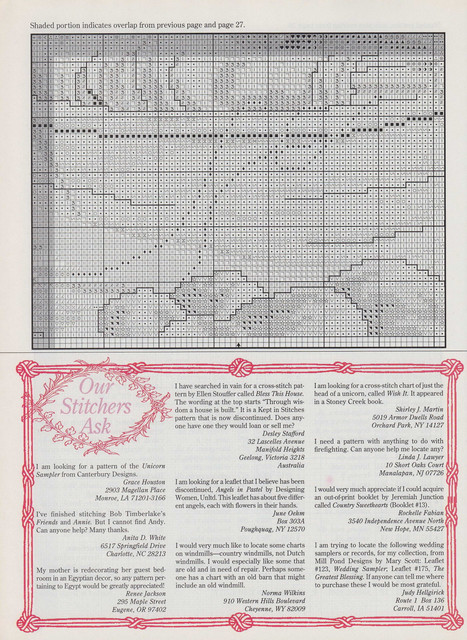 Shaded portion indicates overlap from previous page and page 27.
Our
Stitchers
Ask
I am looking for a pattern of the Unicorn
Sampler from Canterbury Designs.
Grace Houston
2903 Magellan Place
Monroe, LA 71201-3166
I've finished stitching Bob Timberlake's
Friends and Annie. But I cannot find Andy.
Can anyone help? Many thanks.
Anita D. White
6517 Springfield Drive
Charlotte, NC 28213
My mother is redecorating her guest bed-
room in an Egyptian decor, so any pattern per-
taining to Egypt would be greatly appreciated!
Renee Jackson
295 Maple Street
Eugene, OR 97402
I have searched in vain for a cross-stitch pat-
tern by Ellen Stouffer called Bless This House.
The wording at the top starts "Through wis-
dom a house is built." It is a Kept in Stitches
pattern that is now discontinued. Does any-
one have one they would loan or sell me?
Desley Stafford
32 Lascelles Avenue
Manifold Heights
Geelong, Victoria 3218
Australia
I am looking for a leaflet that I believe has been
discontinued, Angels in Pastel by Designing
Women, Unltd. This leaflet has about five differ-
ent angels, each with flowers in their hands.
June Oehm
Box 303A
Poughquag, NY 12570
I would very much like to locate some charts
on windmills—country windmills, not Dutch
windmills. I would especially like some that
are old and in need of repair. Perhaps some-
one has a chart with an old barn that might
include an old windmill.
Norma Wilkins
910 Western Hills Boulevard
Cheyenne, WY 82009
I am looking for a cross-stitch chart of just the
head of a unicorn, called Wish It. It appeared
in a Stoney Creek book.
Shirley J. Martin
5019 Armor Duells Road
Orchard Park, NY 14127
I need a pattern with anything to do with
firefighting. Can anyone help me locate any?
Linda J. Lawyer
10 Short Oaks Court
Manalapan, NJ 07726
I would very much appreciate if I could acquire
an out-of-print booklet by Jeremiah Junction
called Country Sweethearts (Booklet #13).
Rochelle Fabian
3540 Independence Avenue North
New Hope, MN 55427
I am trying to locate the following wedding
samplers or records, for my collection, from
Mill Pond Designs by Mary Scott: Leaflet
#123, Wedding Sampler; Leaflet #175, The
Greatest Blessing. If anyone can tell me where
to purchase these I would be most grateful.
Judy Hellgirick
Route 1 Box 136
Carroll, IA 51401